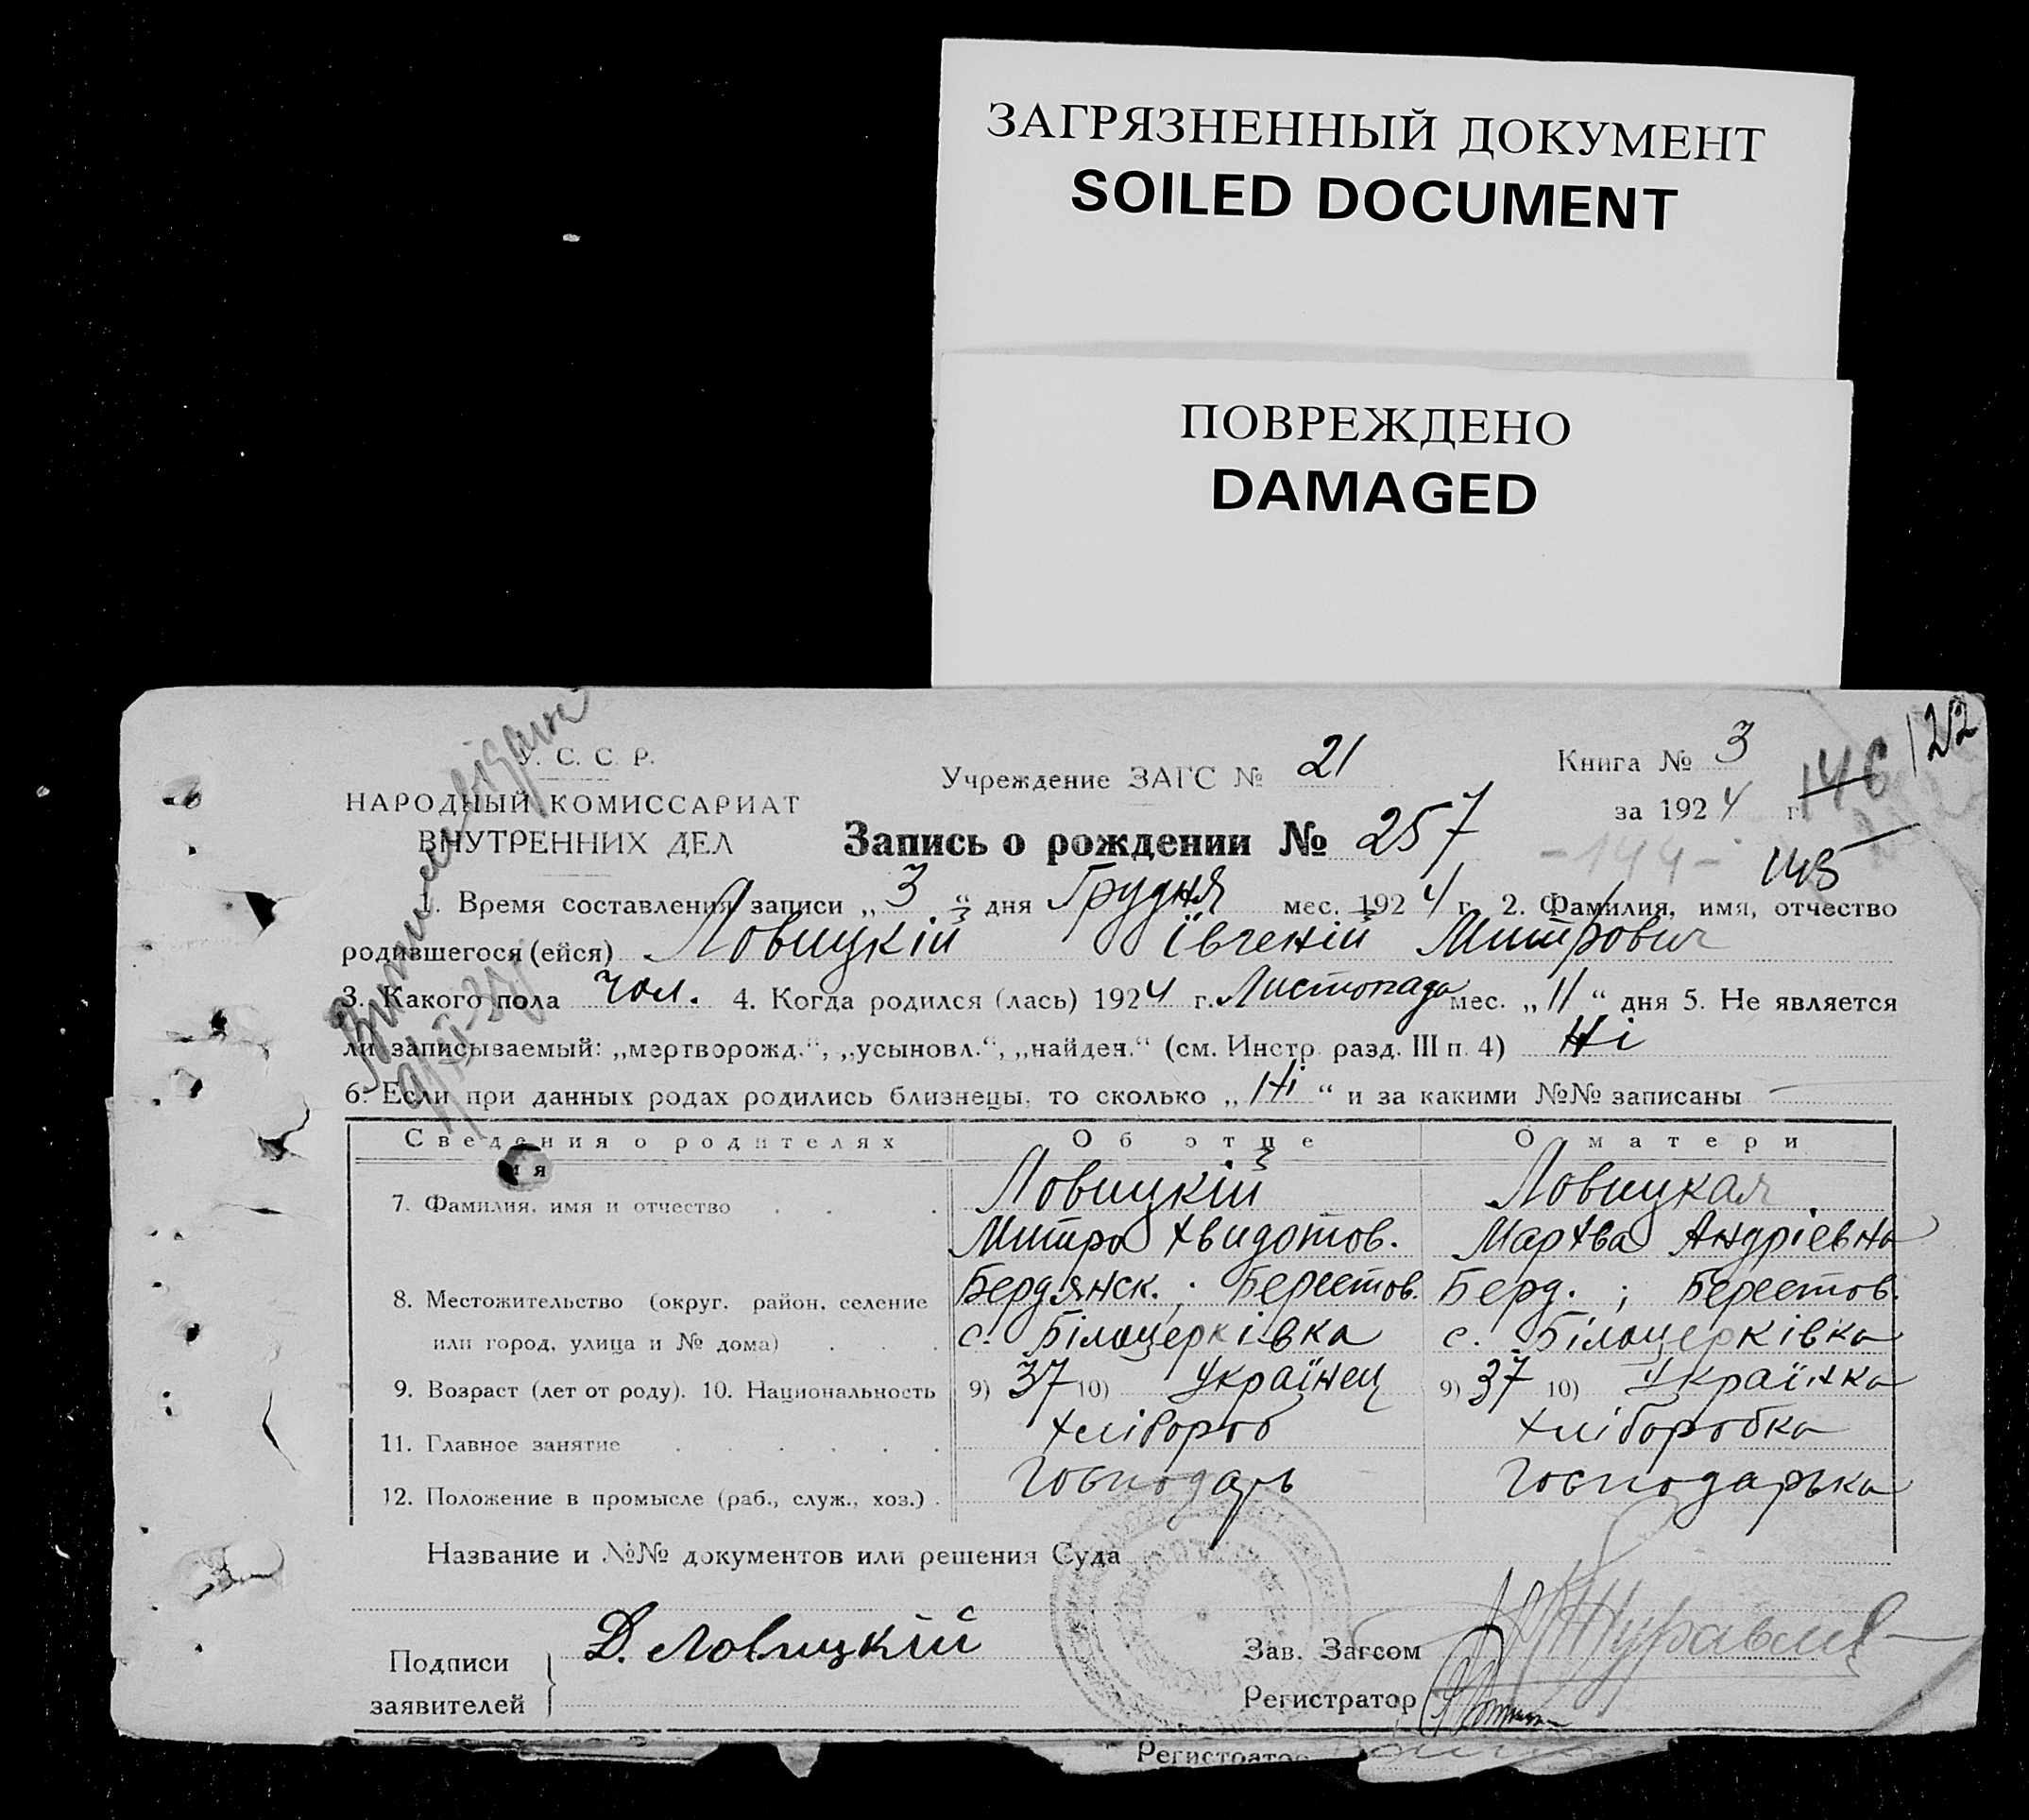 ЗАГРЯЗНЕННЫЙ ДОКУМЕНТ
SOILED DOCUMENT
ПОВРЕЖДЕНО
DAMAGED
122
У. С. С. Р.
НАРОДНЫЙ КОМИССАРИАТ
ВНУТРЕННИХ ДЕЛ
Учреждение ЗАГС № 21
Книга № 3
за 1924 г.
146
Запись о рождении № 257
- 144 -
145
1. Время составления записи „ 3 “ дня Грудня мес. 1924 г. 2. Фамилия, имя, отчество
родившегося (ейся) Ловицкій Ївгеній Митрович
3. Какого пола чол. 4. Когда родился (лась) 1924 г. Листопада мес. „ 11 “ дня 5. Не является
ли записываемый: „мертворожд.“, „усыновл.“, „найден.“ (см. Инстр. разд. III п. 4) Ні
6. Если при данных родах родились близнецы, то сколько „ Ні “ и за какими №№ записаны —
Сведения о родителях Об отце О матери
7. Фамилия, имя и отчество Ловицкій Ловицкая
Митро Хвидотов. Мархва Андріевна
8. Местожительство (округ, район, селение Бердянск. ; Берестов. Берд. ; Берестов.
или город, улица и № дома) с. Білоцерківка с. Білоцерківка
9. Возраст (лет от роду). 10. Национальность 9) 37 10) Українец 9) 37 10) Українка
11. Главное занятие Хлібороб Хлiборобка
12. Положение в промысле (раб., служ., хоз.) Господарь Господарька
Название и №№ документов или решения Суда
Подписи заявителей Д. Ловицкій
Зав. Загсом
Регистратор
Регистратор